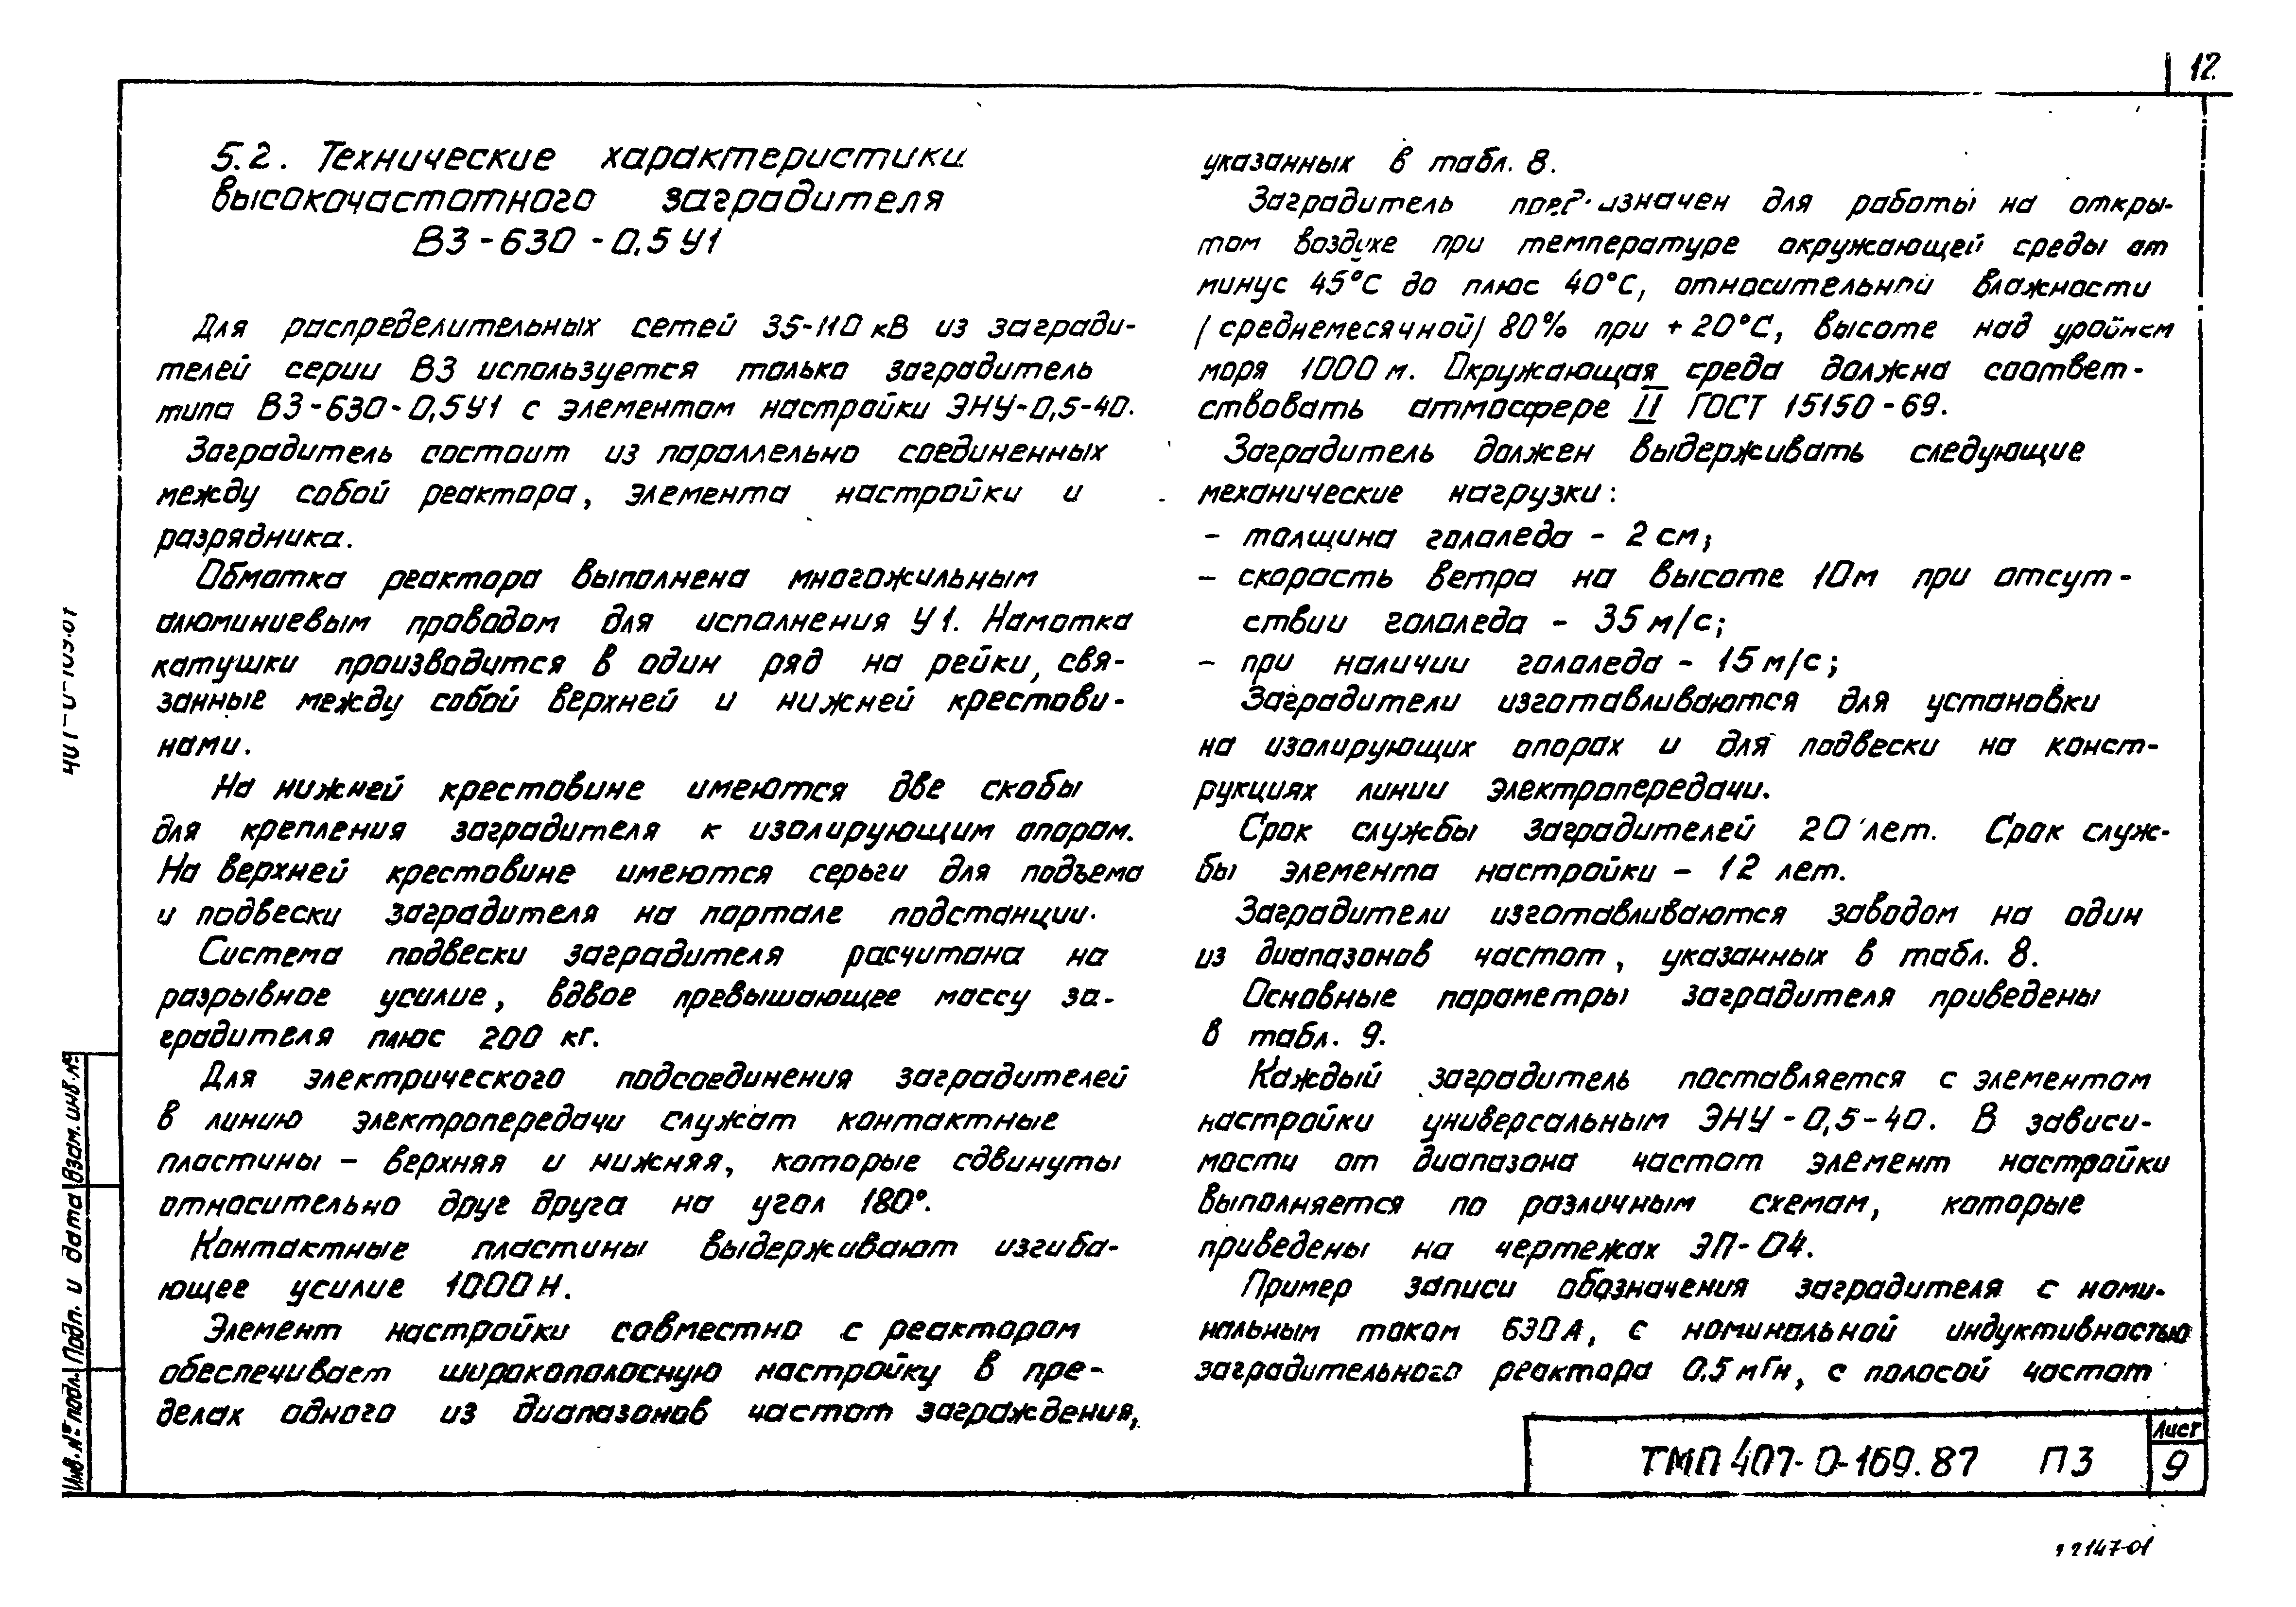 12
5.2. Технические характеристики
высокочастотного заградителя
ВЗ-630-0,5У1
Для распределительных сетей 35-110 кВ из загради-
телей серии ВЗ используется только заградитель
типа ВЗ-630-0,5У1 с элементом настройки ЭНУ-0,5-40.
Заградитель состоит из параллельно соединенных
между собой реактора, элемента настройки и
разрядника.
Обмотка реактора выполнена многожильным
алюминиевым проводом для исполнения У1. Намотка
катушки производится в один ряд на рейки, свя-
занные между собой верхней и нижней крестови-
нами.
На нижней крестовине имеются две скобы
для крепления заградителя к изолирующим опорам.
На верхней крестовине имеются серьги для подъема
и подвески заградителя на портале подстанции.
Система подвески заградителя расчитана на
разрывное усилие, вдвое превышающее массу за-
градителя плюс 200 кг.
Для электрического подсоединения заградителей
в линию электропередачи служат контактные
пластины – верхняя и нижняя, которые сдвинуты
относительно друг друга на угол 180°.
Контактные пластины выдерживают изгиба-
ющее усилие 1000 Н.
Элемент настройки совместно с реактором
обеспечивает широкополосную настройку в пре-
делах одного из диапазонов частот заграждения,
указанных в табл. 8.
Заградитель для работы на откры-
том воздухе при температуре окружающей среды от
минус 45°С до плюс 40°С, относительной влажности
/среднемесячной/ 80% при +20°С, высоте над уровнем
моря 1000 м. Окружающая среда должна соответ-
ствовать атмосфере II ГОСТ 15150-69.
Заградитель должен выдерживать следующие
механические нагрузки:
- толщина гололеда - 2 см;
- скорость ветра на высоте 10 м при отсут-
ствии гололеда - 35 м/с;
- при наличии гололеда - 15 м/с;
Заградители изготавливаются для установки
на изолирующих опорах и для подвески на конст-
рукциях линии электропередачи.
Срок службы заградителей 20 лет. Срок служ-
бы элемента настройки - 12 лет.
Заградители изготавливаются заводом на один
из диапазонов частот, указанных в табл. 8.
Основные параметры заградителя приведены
в табл. 9.
Каждый заградитель поставляется с элементом
настройки универсальным ЭНУ-0,5-40. В зависи-
мости от диапазона частот элемент настройки
выполняется по различным схемам, которые
приведены на чертежах ЭП-04.
Пример записи обозначения заградителя с номи-
нальным током 630А, с номинальной индуктивностью
заградительного реактора 0.5 мГн, с полосой частот
ТМП 407-0-169.87 ПЗ
Лист
9
Взам. инв. №
Подп. и дата
Инв. № подл.
2147-01